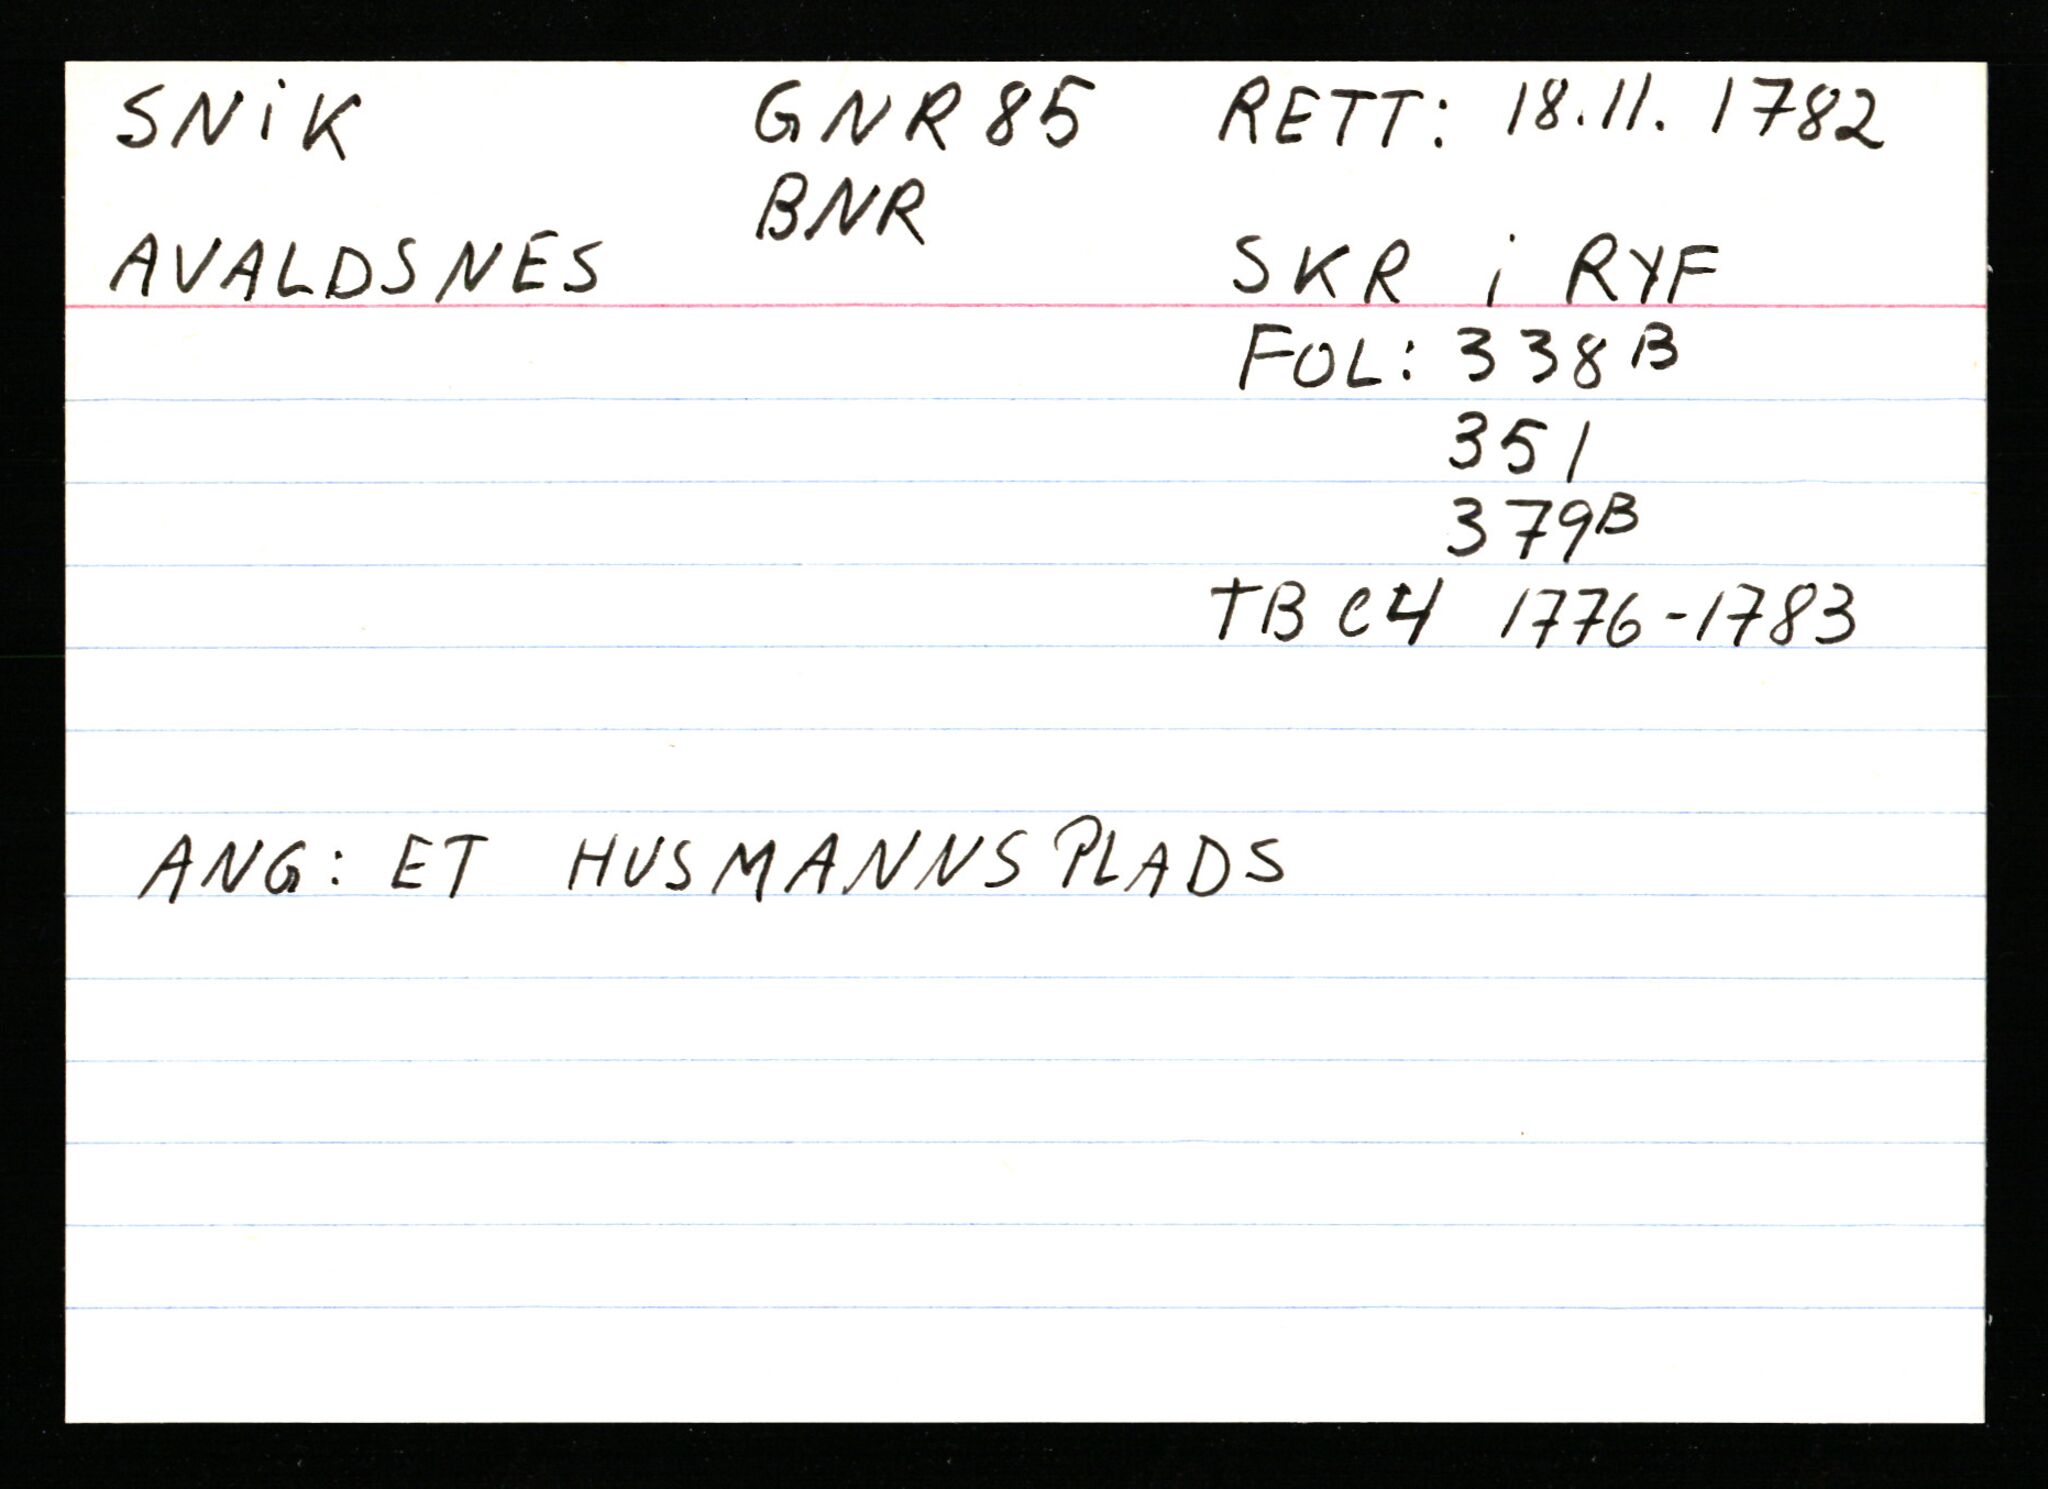 SNiK GNR 85 RETT: 18.11. 1782
BNR
AVALDSNES SKR i RYF
FOL: 338B
351
379B
TB C4 1776-1783
ANG: ET HUSMANNSPLADS